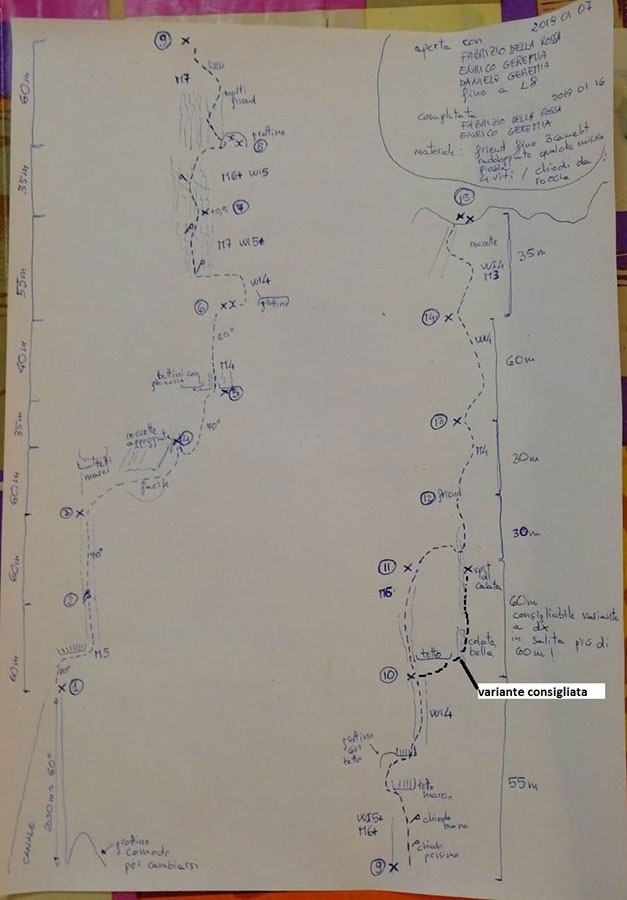 2019 01 07
aperta con
FABRIZIO DELLA ROSSA
ENRICO GEREMIA
DANIELE GEREMIA
fino a L8
2019 01 16
completata
FABRIZIO DELLA ROSSA
ENRICO GEREMIA
materiale: friend fino 3 camelot
raddoppiate qualche misura
piccola
4 viti / chiodi da
roccia
9
60m
M7
molti
friend
grottino
8
35m
M6+ WI5
7
M7 WI5+
55m
WI4
grottino
6
80°
40m
M4
tettini con
ghiaccio
5
70°
35m
roccette
appoggiate
4
tetti
marci
facile
60m
3
70°
60m
2
M5
60m
80°
1
200m 60°
CANALE
grottino
comodo
per cambiarsi
15
roccette
WI4
M3
35m
14
WI4
60m
13
M4
30m
12 friend
30m
11
M6
spit
di
calata
60m
consigliabile variante
a dx
in salita più di
60m!
tetto
colata
bella
10
variante consigliata
WI4
grottino
con
tetto
tetto
marcio
55m
WI5+
M6+
chiodo
buono
chiodo
pessimo
9